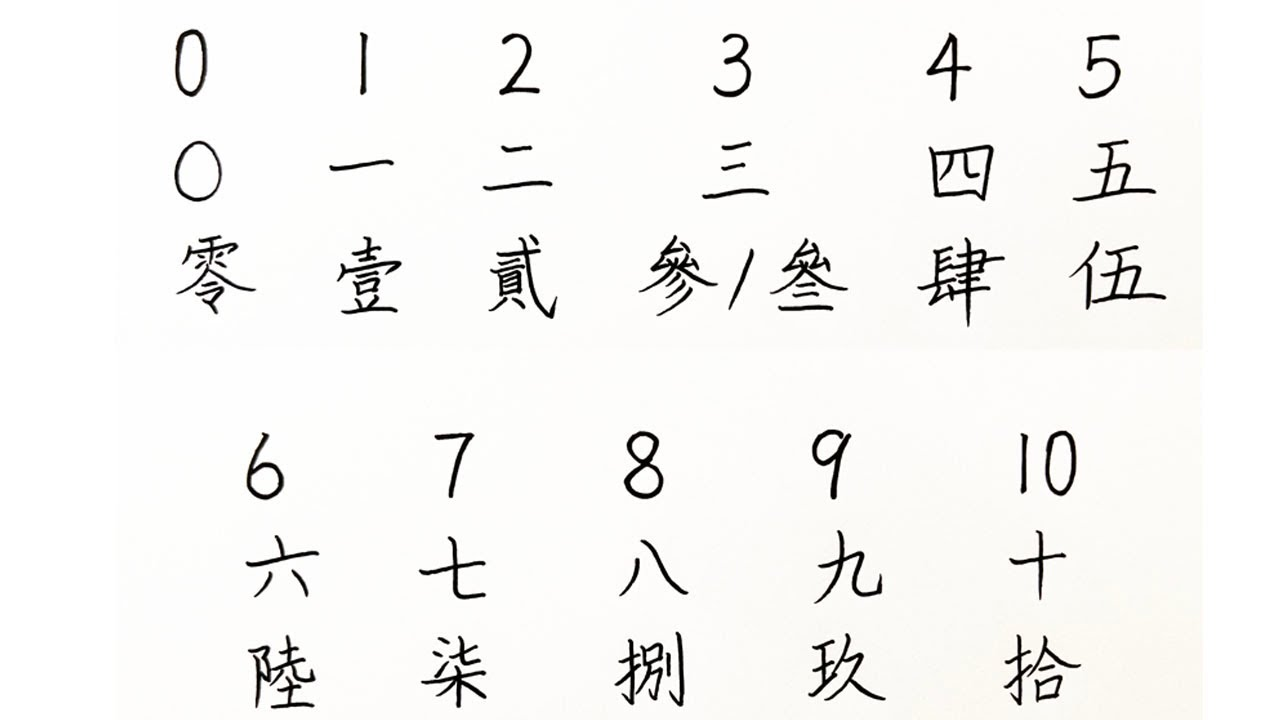 0 1 2 3 4 5
〇 一 二 三 四 五
零 壹 貳 參/叁 肆 伍
6 7 8 9 10
六 七 八 九 十
陸 柒 捌 玖 拾